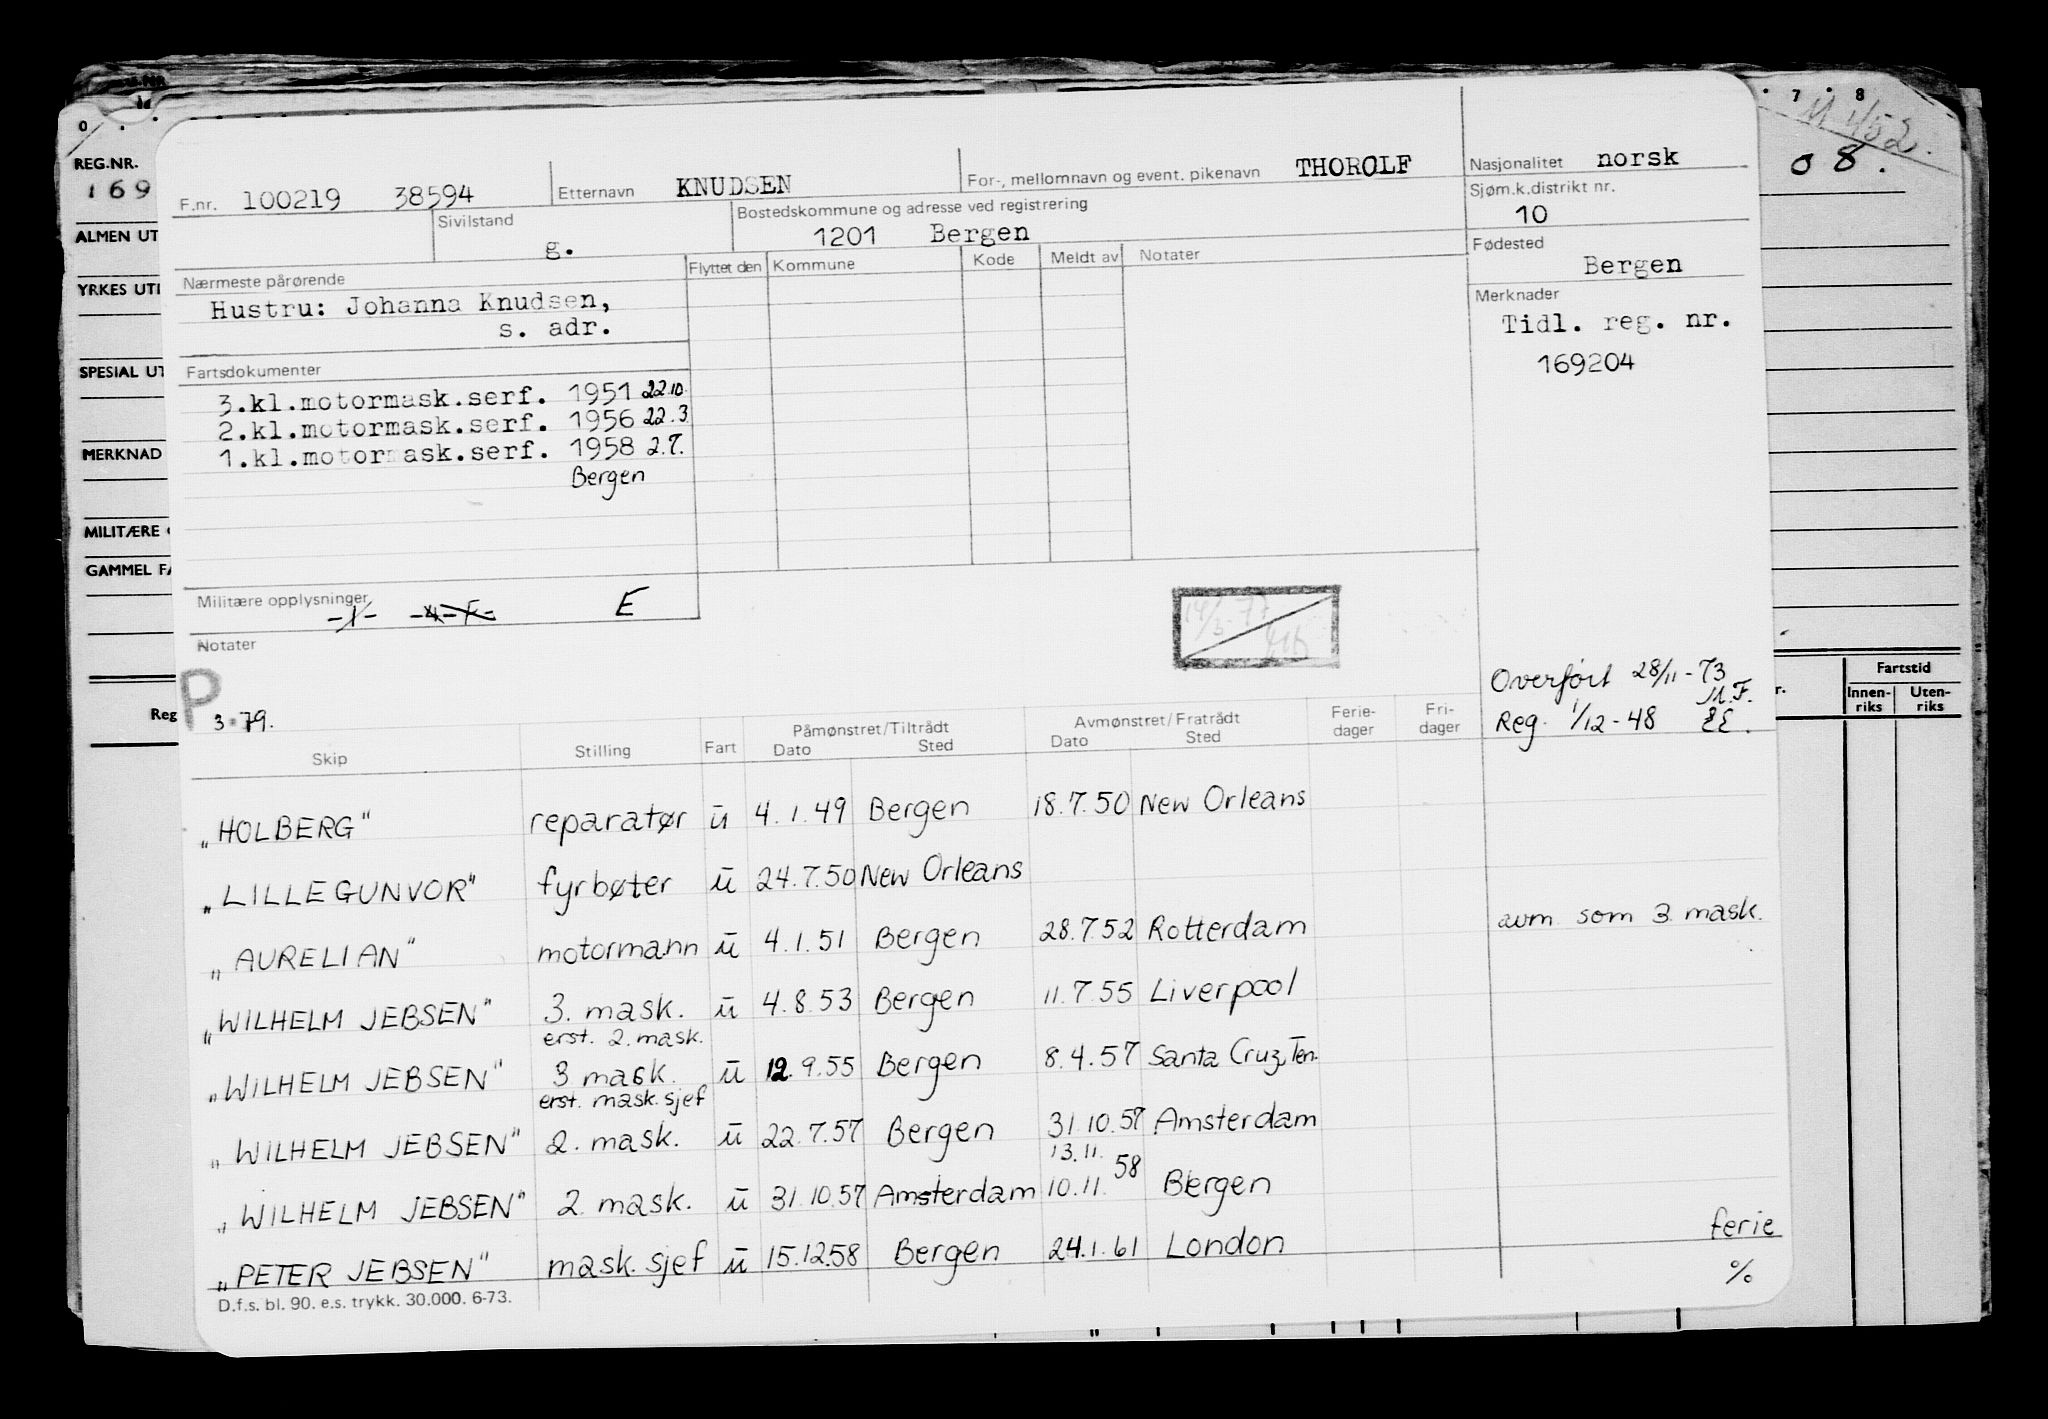 0 7 8
M 1/52.
REG.NR.
169
08.
ALMEN UT
YRKES UT
SPESIAL UT
MERKNAD
MILITÆRE
GAMMEL FA
Reg
Fartstid
Innen-riks Uten-riks
F.nr. 100219 38594 Etternavn KNUDSEN For-, mellomnavn og event. pikenavn THOROLF Nasjonalitet norsk
Sivilstand g. Bostedskommune og adresse ved registrering 1201 Bergen Sjøm.k.distrikt nr. 10
Nærmeste pårørende Flyttet den Kommune Kode Meldt av Notater Fødested Bergen
Hustru: Johanna Knudsen,
s. adr.
Merknader
Tidl. reg. nr.
169204
Fartsdokumenter
3.kl.motormask.serf. 1951 22.10.
2.kl.motormask.serf. 1956 22.3.
1.kl.motormask.serf. 1958 2.7.
Bergen
Militære opplysninger E
Notater
P 3.79.
Overført 28/11-73
M.F.
Reg. 1/12-48 EE.
Skip Stilling Fart Påmønstret/Tiltrådt Dato Sted Avmønstret/Fratrådt Dato Sted Ferie-dager Fri-dager
"HOLBERG" reparatør u 4.1.49 Bergen 18.7.50 New Orleans
"LILLEGUNVOR" fyrbøter u 24.7.50 New Orleans
"AURELIAN" motormann u 4.1.51 Bergen 28.7.52 Rotterdam avm. som 3 mask.
"WILHELM JEBSEN" 3. mask. u 4.8.53 Bergen 11.7.55 Liverpool
erst. 2. mask.
"WILHELM JEBSEN" 3 mask. u 12.9.55 Bergen 8.4.57 Santa Cruz, Ten.
erst. mask. sjef
"WILHELM JEBSEN" 2. mask. u 22.7.57 Bergen 31.10.57 Amsterdam
13.11.
"WILHELM JEBSEN" 2. mask. u 31.10.57 Amsterdam 10.11.58 Bergen
"PETER JEBSEN" mask. sjef u 15.12.58 Bergen 24.1.61 London ferie
D.f.s. bl. 90. e.s. trykk. 30.000. 6-73. %